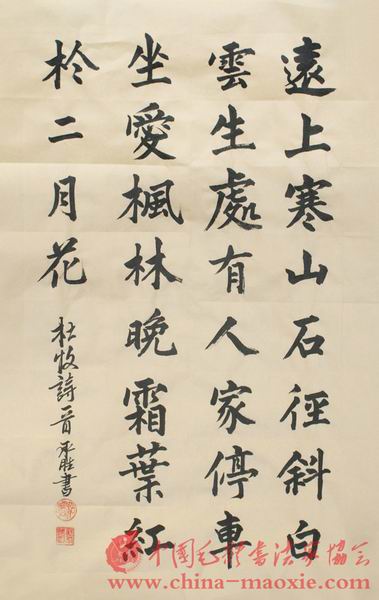 遠上寒山石徑斜白
雲生處有人家停車
坐愛楓林晚霜葉紅
於二月花
杜牧詩一首 書
中国毛體書法家協会
www.china-maoxie.com